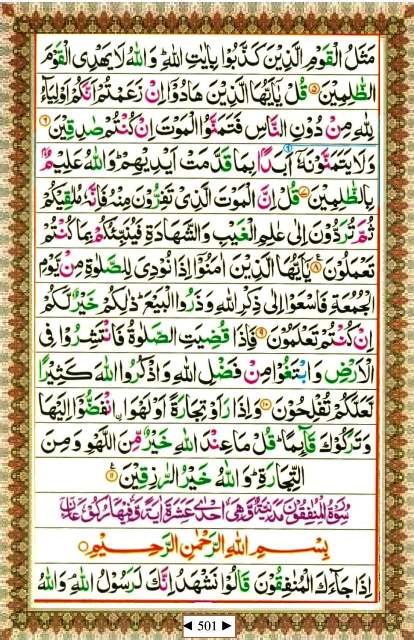 مَثَلُ الْقَوْمِ الَّذِيْنَ كَذَّبُوْا بِاٰيٰتِ اللّٰهِ ؕ وَ اللّٰهُ لَا يَهْدِی الْقَوْمَ
الظّٰلِمِيْنَ ۵ قُلْ يٰۤاَيُّهَا الَّذِيْنَ هَادُوْۤا اِنْ زَعَمْتُمْ اَنَّكُمْ اَوْلِيَآءُ
لِلّٰهِ مِنْ دُوْنِ النَّاسِ فَتَمَنَّوُا الْمَوْتَ اِنْ كُنْتُمْ صٰدِقِيْنَ ۶
وَلَا يَتَمَنَّوْنَهٗۤ اَبَدًۢا بِمَا قَدَّمَتْ اَيْدِيْهِمْ ؕ وَاللّٰهُ عَلِيْمٌۢ
بِالظّٰلِمِيْنَ ۷ قُلْ اِنَّ الْمَوْتَ الَّذِیْ تَفِرُّوْنَ مِنْهُ فَاِنَّهٗ مُلٰقِيْكُمْ
ثُمَّ تُرَدُّوْنَ اِلٰی عٰلِمِ الْغَيْبِ وَالشَّهَادَةِ فَيُنَبِّئُكُمْ بِمَا كُنْتُمْ
تَعْمَلُوْنَ ۸ يٰۤاَيُّهَا الَّذِيْنَ اٰمَنُوْۤا اِذَا نُوْدِیَ لِلصَّلٰوةِ مِنْ يَّوْمِ
الْجُمُعَةِ فَاسْعَوْا اِلٰی ذِكْرِ اللّٰهِ وَذَرُوا الْبَيْعَ ؕ ذٰلِكُمْ خَيْرٌ لَّكُمْ
اِنْ كُنْتُمْ تَعْلَمُوْنَ ۹ فَاِذَا قُضِيَتِ الصَّلٰوةُ فَانْتَشِرُوْا فِی
الْاَرْضِ وَابْتَغُوْا مِنْ فَضْلِ اللّٰهِ وَاذْكُرُوا اللّٰهَ كَثِيْرًا
لَّعَلَّكُمْ تُفْلِحُوْنَ ۱۰ وَاِذَا رَاَوْا تِجَارَةً اَوْ لَهْوَا ۨانْفَضُّوْۤا اِلَيْهَا
وَتَرَكُوْكَ قَآئِمًا ؕ قُلْ مَا عِنْدَ اللّٰهِ خَيْرٌ مِّنَ اللَّهْوِ وَمِنَ
التِّجَارَةِ ؕ وَاللّٰهُ خَيْرُ الرّٰزِقِيْنَ ۱۱
سُوْرَةُ الْمُنٰفِقُوْنَ مَدَنِيَّةٌ وَّهِیَ اِحْدٰی عَشَرَةَ اٰيَةً وَّفِيْهَا رُكُوْعَانِ
بِسْمِ اللّٰهِ الرَّحْمٰنِ الرَّحِيْمِ
اِذَا جَآءَكَ الْمُنٰفِقُوْنَ قَالُوْا نَشْهَدُ اِنَّكَ لَرَسُوْلُ اللّٰهِ ؕ وَاللّٰهُ
◄ 501 ►